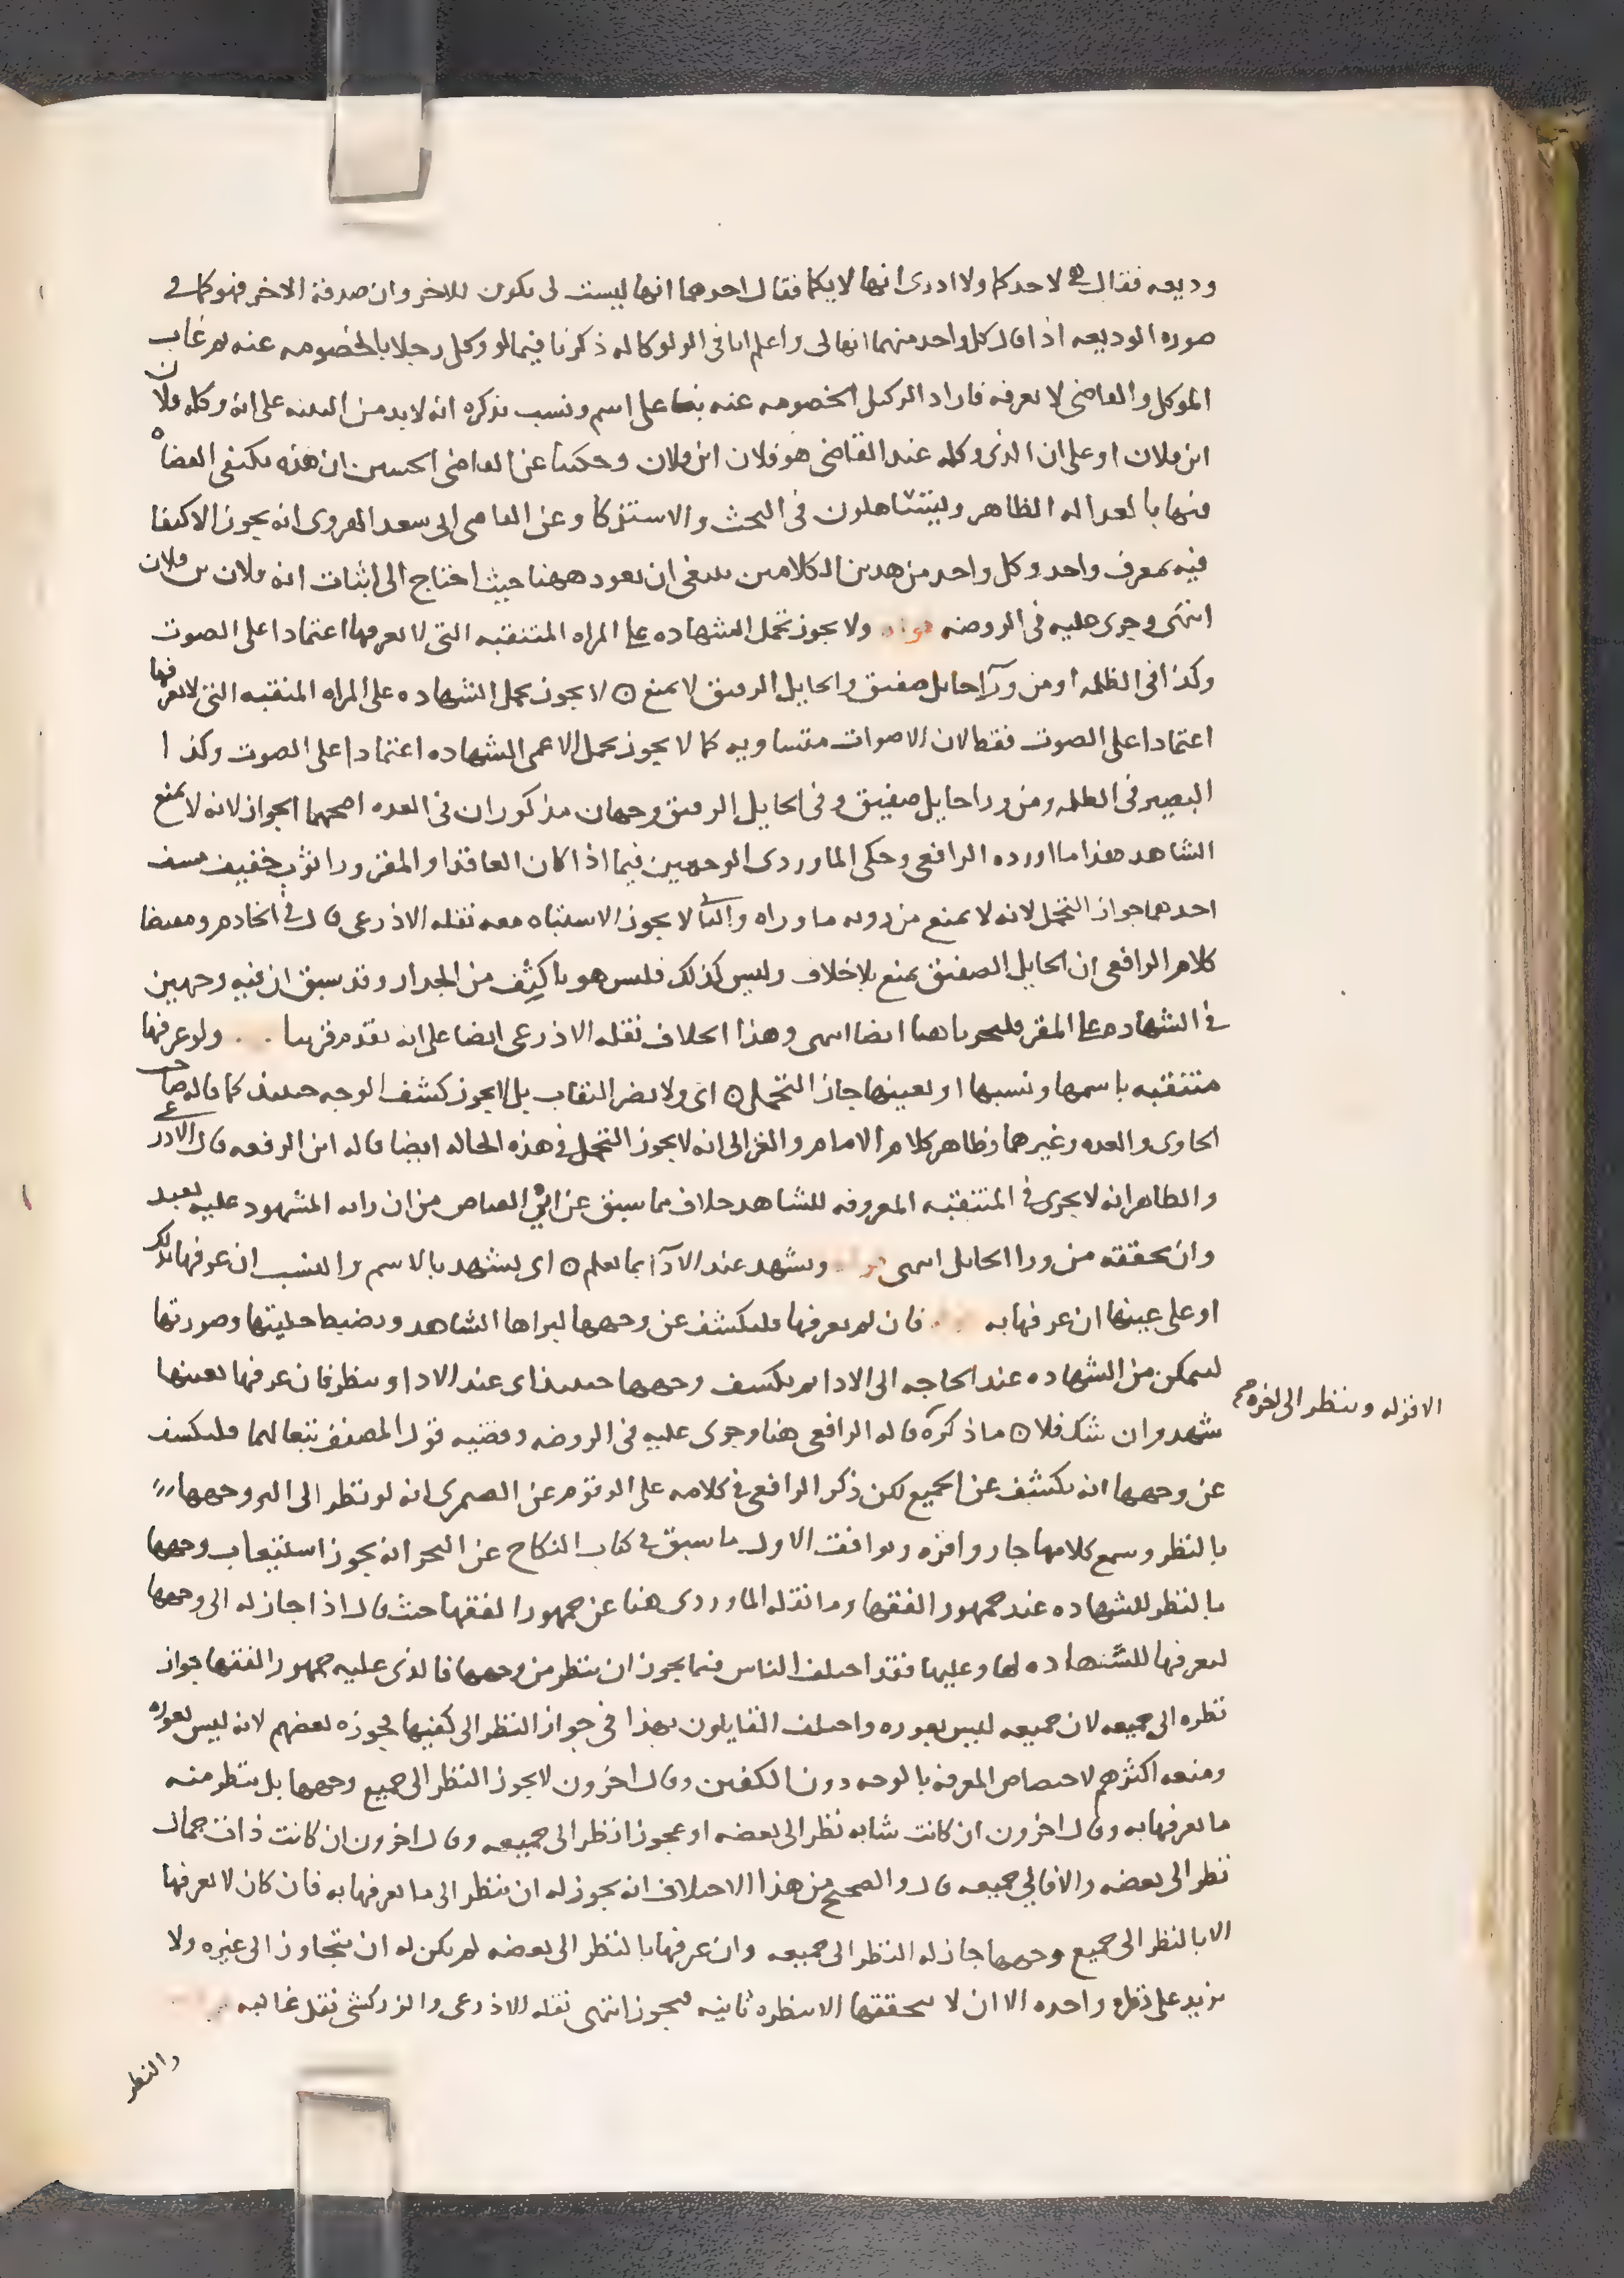 وديعه فقال هي لاحدكما ولا ادرى انها لايكما فقال احدهما انها ليست لى يكون للاخر وان صدقه الاخر فهو كما في
صوره الوديعه اذا قال كل واحد منهما انها لى واعلم انا فى الوكاله ذكرنا فيما لو وكل رجلا بالخصومه عنه ثم غاب
الموكل والقاضى لا يعرفه فاراد الوكيل الخصومه عنه بنا على اسم ونسب يذكره انه لابد من البينه على انه وكله فلان
ابن فلان او على ان الذى وكله عند القاضى هو فلان ابن فلان وحكينا عن القاضى الحسين ان هذه يكتفى القضاه
فيها بالعداله الظاهر ويتساهلون فى البحث والاستزكا وعن القاضى ابى سعد الهروى انه يجوز الاكتفا
فيه بمعرف واحد وكل واحد من هذين الكلامين ينبغى ان يعود ههنا حيث احتاج الى اثبات انه فلان بن فلان
انتهى وجرى عليه فى الروضه ولا يجوز تحمل الشهاده على المراه المتنقبه التى لا يعرفها اعتمادا على الصوت
وكذا فى الظلمه او من ورآ حايل صفيق والحايل الرقيق لا يمنع ۞ لا يجوز تحمل الشهاده على المراه المنتقبه التى لا يعرفها
اعتمادا على الصوت فقط لان الاصوات متساويه كما لا يجوز تحمل الاعمى الشهاده اعتمادا على الصوت وكذا
البصير فى الظلمه ومن ورا حايل صفيق وفى الحايل الرقيق وجهان مذكوران فى العده اصحهما الجواز لانه لا يمنع
الشاهد هذا ما اورده الرافعى وحكى الماوردى الوجهين فيما اذا كان العاقد او المقر ورا ثوب خفيف يشف
احدهما جواز التحمل لانه لا يمنع من رويه ما وراه والثانى لا يجوز الاشتباه معه نقله الاذرعى قال فى الخادم ومقتضا
كلام الرافعى ان الحايل الصفيق يمنع بلا خلاف وليس كذلك فليس هو باكثف من الجدار وقد سبق ان فيه وجهين
فى الشهاده على المقر فليجريا هنا ايضا انتهى وهذا الخلاف نقله الاذرعى ايضا على انه تقدم قريبا ولو عرفها
متنقبه باسمها ونسبها او بعينها جاز التحمل ۞ اى ولا يضر النقاب بل لا يجوز كشف الوجه حينئذ كما قاله صاحب
الحاوى والعده وغيرهما وظاهر كلام الامام والغزالى انه لا يجوز التحمل فى هذه الحاله ايضا قاله ابن الرفعه قال الاذرعى
والظاهر انه لا يجرى فى المتنقبه المعروفه للشاهد خلاف مما سبق عن ابن القاص من ان رايه المشهود عليه بعيد
وان تحققته من ورا الحايل انتهى ويشهد عند الادآ بما يعلم ۞ اى يشهد بالاسم والنسب ان عرفها بذلك
او على عينها ان عرفها به فان لم يعرفها فليكشف عن وجهها ليراها الشاهد ويضبط حليتها وصورتها
ليتمكن من الشهاده عند الحاجه الى الادا ثم يكشف وجهها حينئذ اى عند الادا وينظر فان عرفها بعينها
الا قوله وينظر الى اخره
شهد وان شك فلا ۞ ما ذكره قاله الرافعى هنا وجرى عليه فى الروضه وقضيه قول المصنف تبعا لهما فليكشف
عن وجهها انه يكشف عن الجميع لكن ذكر الرافعى فى كلامه على الرقوم عن الصيمرى انه لو نظر الى اكثر وجهها
بالنظر وسمع كلامها جاز واقره ويوافق الاول ما سبق فى كتاب النكاح عن البحر انه يجوز استيعاب وجهها
بالنظر للشهاده عند جمهور الفقها وما نقله الماوردى هنا عن جمهور الفقها حيث قال اذا جاز له الى وجهها
ليعرفها للشهاده لها وعليها فقد اختلف الناس فيما يجوز ان ينظر من وجهها فالذى عليه جمهور الفقها جواز
نظره الى جميعه لان جميعه ليس بعوره واختلف القايلون بهذا فى جواز النظر الى كفيها فجوزه بعضهم لانه ليس بعوره
ومنعه اكثرهم لاختصاص المعرفه بالوجه دون الكفين وقال اخرون لا يجوز النظر الى جميع وجهها بل ينظر منه
ما يعرفها به وقال اخرون ان كانت شابه نظر الى بعضه او عجوزا نظر الى جميعه وقال اخرون ان كانت ذات جمال
نظر الى بعضه والا فالى جميعه قال والصحيح من هذا الاختلاف انه يجوز له ان ينظر الى ما يعرفها به فان كان لا يعرفها
الا بالنظر الى جميع وجهها جاز له النظر الى جميعه وان عرفها بالنظر الى بعضه لم يكن له ان يتجاوز الى غيره ولا
يزيد على نظره واحده الا ان لا يتحققها الا بنظره ثانيه فيجوز انتهى نقله الاذرعى والزركشى نقل غالبه
والنظر